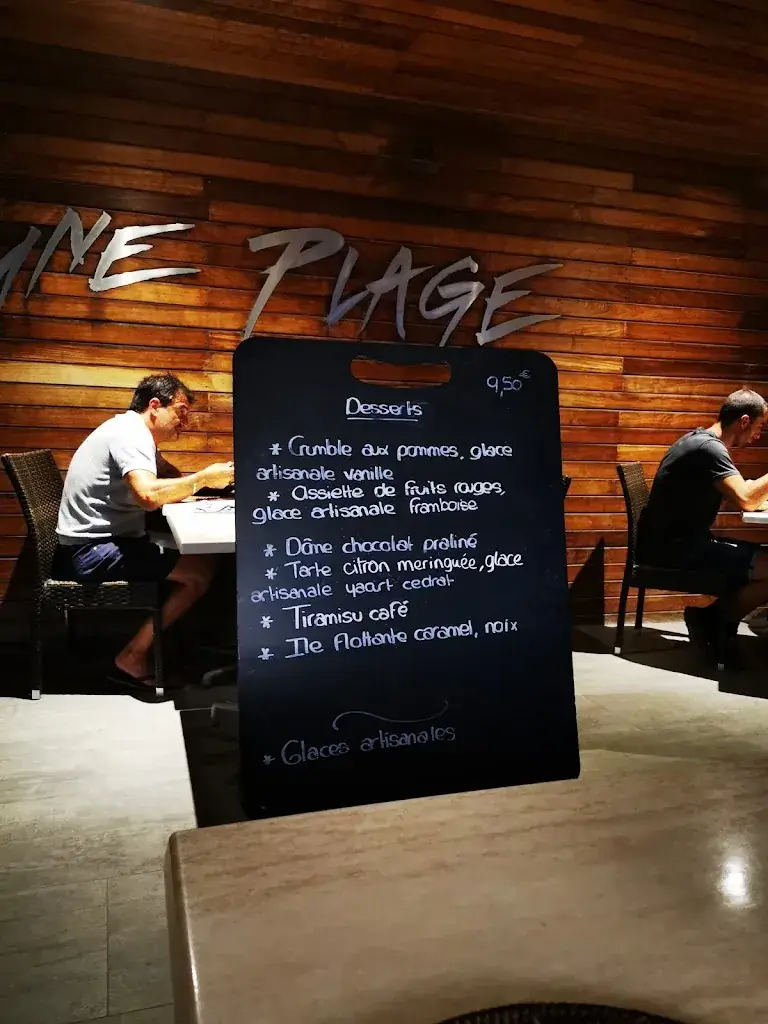 NE PLAGE
9,50€
Desserts
* Crumble aux pommes, glace
artisanale vanille
* Assiette de fruits rouges,
glace artisanale framboise
* Dôme chocolat praliné
* Tarte citron meringuée, glace
artisanale yaourt cedrat
* Tiramisu café
* Ile flottante caramel, noix
* Glaces artisanales